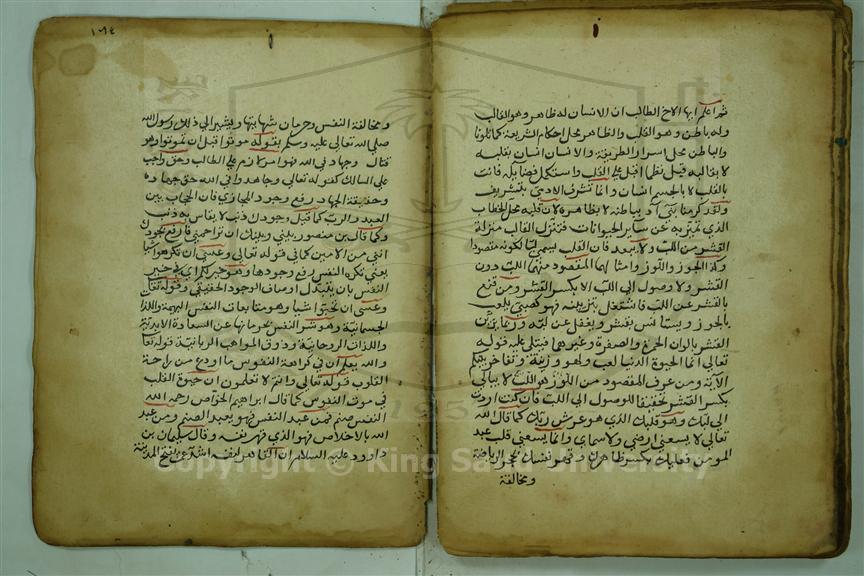 ثم اعلم ايها الاخ الطالب ان الانسان له ظاهر وهو القالب
وله باطن وهو القلب والظاهر محل احكام الشريعة كما تلونا
والباطن محل اسرار الطريقة والانسان انسان بقلبه
لا بقالبه قيل نظما اقبل على القلب واستكمل فضايله فانت
بالقلب لا بالجسم انسان وانما تشرف الادمي بتشريف
ولقد كرمنا بني آدم بباطنه لا بظاهره لان قلبه محل الخطاب
الذي تميز به عن ساير الحيوانات فتنزل القالب منزلة
القشر من اللب ولا يبعد فان القلب يسمى لبا لكونه مقصودا
وكذ الجوز واللوز وامثالهما المقصود منهما اللب دون
القشر ولا وصول الى اللب الا بكسر القشر ومن قنع
بالقشر عن اللب فاشتغل بتزيينه فهو كصبي يلعب
بالجوز ويستانس بقشره ويغفل عن لبه وربما يزين
القشر بالوان الحمرة والصفرة وغيرهما فيتلى عليه قوله
تعالى انما الحيوة الدنيا لعب ولهو وزينة وتفاخر بينكم
الآية ومن عرف المقصود من اللوز هو اللب لا يبالي
بكسر القشر تخفيفا للوصول الى اللب فان كنت اردت
الى لبك وهو قلبك الذي هو عرش ربك كما قال الله
تعالى لا يسعني ارضي ولا سمائي وانما يسعني قلب عبد
المومن فعليك بكسر ظاهرك وقهر نفسك نحو الرياضة
ومخالفة
١٦٤
ومخالفة النفس وحرمان شهايتها ويشير الى ذلك رسول الله
صلى الله تعالى عليه وسلم بقوله موتوا قبل ان تموتوا وهو
قتال وجهاد في الله فهو امر لازم على الطالب وحق واجب
على السالك كقوله تعالى وجاهدوا في الله حق جهاده
وحقيقة الجهاد رفع وجود المجازي فان الحجاب بين
العبد والرب كما قيل وجودك ذنب لا يقاس به ذنب
وكما قال بن منصور بيني وبينك اني تزاحمني فارفع بجودك
انني من الامين كما في قوله تعالى وعسى ان تكرهوا شيا
يعني تكره النفس رفع وجودها وهو خير لكم اي في خير
النفس بان يتبدل اوصاف الوجود الحقيقي وقوله تعالى
وعسى ان تحبوا شيا وهو متابعات النفس البهيمة واللذات
الجسمانية وهو شر النفس لحرمانها عن السعادة الابدية
واللذات الروحانية وذوق المواهب الربانية وقوله تعالى
والله يعلم اي في كراهة النفوس ما اودع من راحة
القلوب قوله تعالى وانتم لا تعلمون ان حيوة القلب
في موت النفوس كما قال ابراهيم الخواص رحمه الله
النفس صنم فمن عبد النفس فهو يعبد الصنم ومن عبد
الله بالاخلاص فهو الذي قهر نفسه وقال سليمان بن
داوود عليه السلام ان القاهر لنفسه اشد عن يفتح المدينة
Copyright © King Saud University
1957